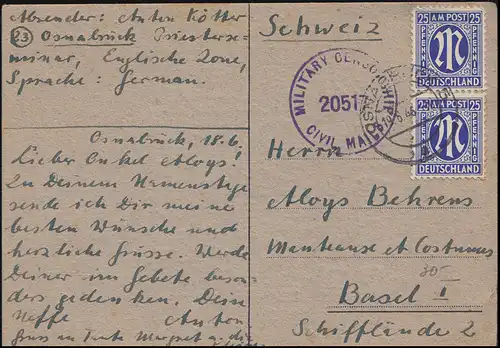 Absender: Anton Kötter
(23) Osnabrück Priesterse-
minar, Englische Zone,
Sprache: German.
Osnabrück, 18.6.
Lieber Onkel Aloys!
Zu Deinem Namenstage
sende ich Dir meine
besten Wünsche und
herzliche Grüsse. Werde
Deiner im Gebete beson-
ders gedenken. Dein
Neffe Anton
Gruss an Tante Margret
Schweiz
MILITARY CENSORSHIP
20517
CIVIL MAILS
25 AM POST 25
PFENNIG
M
DEUTSCHLAND
25 AM POST 25
PFENNIG
M
DEUTSCHLAND
Herrn
Aloys Behrens
Manteaux et Costumes
Basel I
Schifflände 2